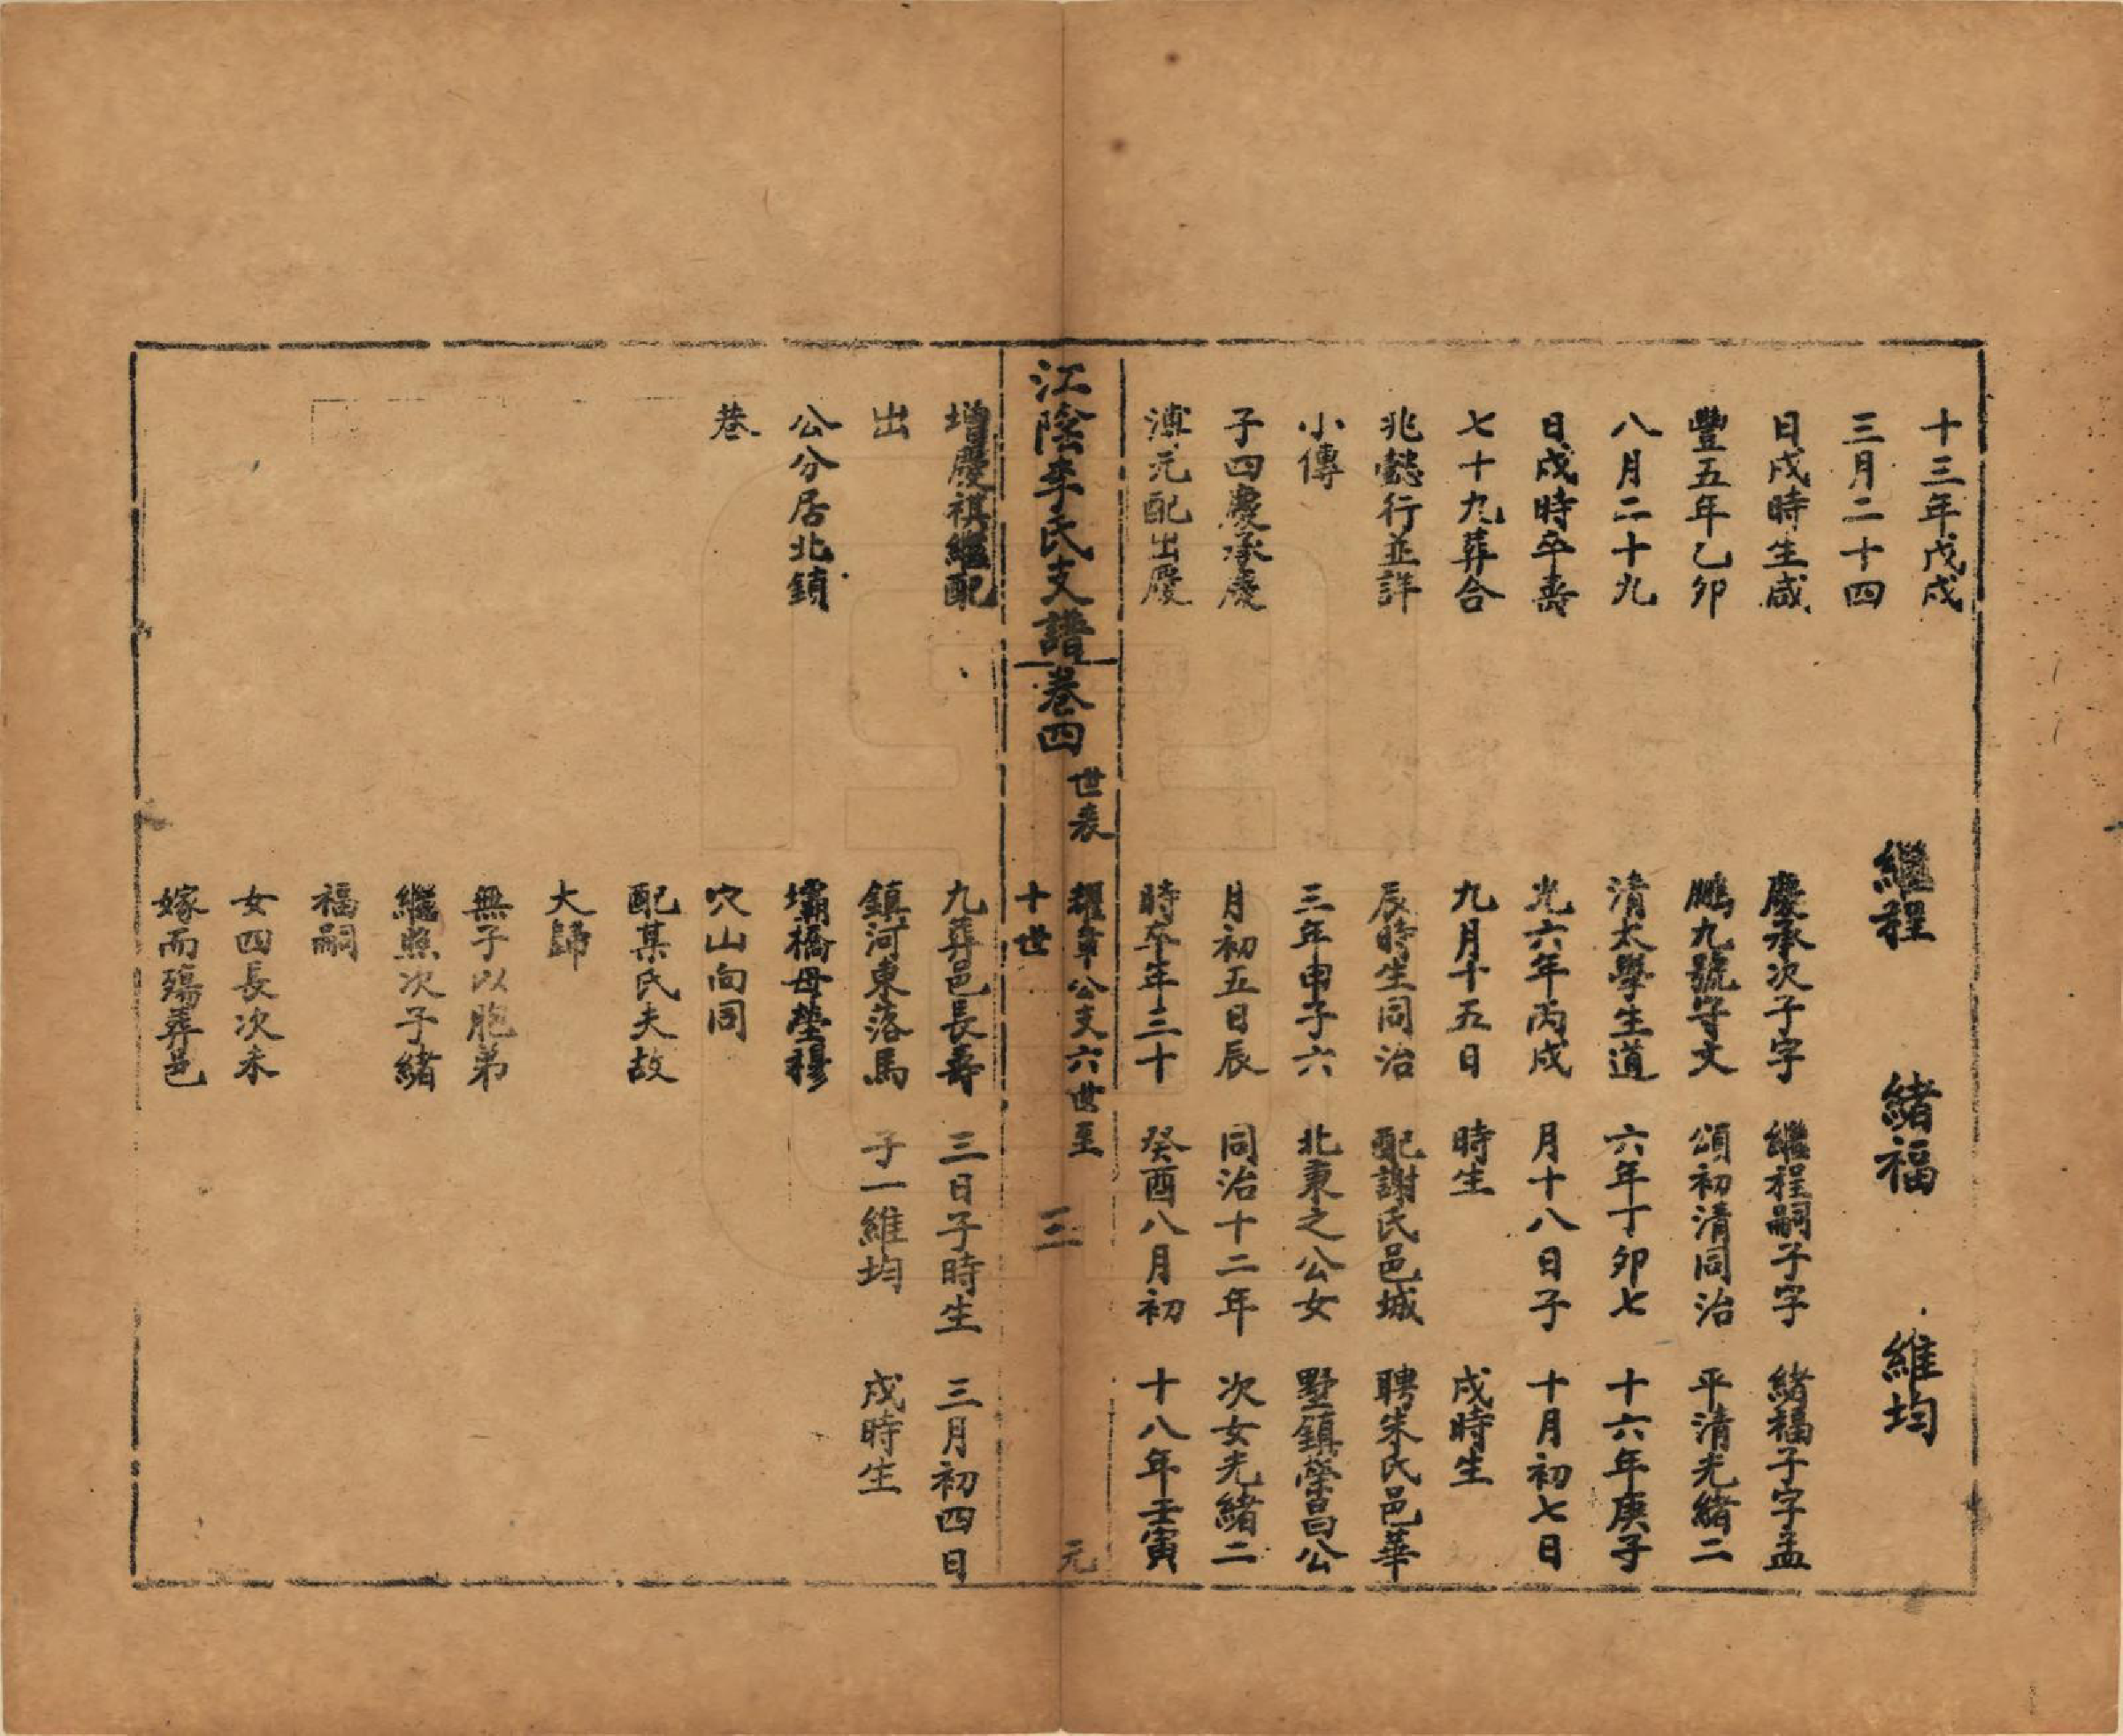 十三年戊戌
三月二十四
日戌時生咸
豐五年乙卯
八月二十九
日戌時卒壽
七十九葬合
兆懿行並詳
小傳
子四慶承慶
溥元配出慶
增慶祺繼配
出
公分居北鎖
巷
繼程
慶承次子字
鵬九號守文
清太學生道
光六年丙戌
九月十五日
辰時生同治
三年甲子六
月初五日辰
時卒年三十
九葬邑長壽
鎮河東落馬
壩橋母塋穆
穴山向同
配某氏夫故
大歸
無子以胞弟
繼照次子緒
福嗣
女四長次未
嫁而殤葬邑
緒福
繼程嗣子字
頌初清同治
六年丁卯七
月十八日子
時生
配謝氏邑城
北東之公女
同治十二年
癸酉八月初
三日子時生
子一維均
維均
緒福子字孟
平清光緒二
十六年庚子
十月初七日
戌時生
聘朱氏邑華
墅鎮榮昌公
次女光緒二
十八年壬寅
三月初四日
戌時生
江陰李氏支譜
卷四
世表
耀章公支六世至
十世
三
元